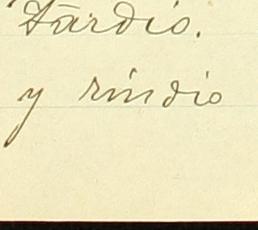 Tárdio.
y rindio